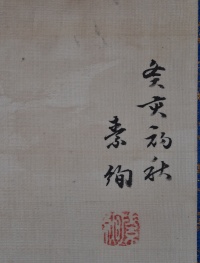 癸亥初秋
素絢